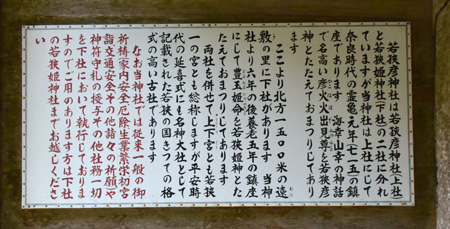 若狭彦神社は若狭彦神社(上社)
と若狭姫神社(下社)の二社に分れ
ていますが当神社は上社にして
奈良時代の霊亀元年(七一五)の鎮
座であります 海幸山幸の神話
で名高い彦火火出見尊を若狭彦
神とたたえておまつりしており
ます
ここより北方一五〇〇米の遠
敷の里に下社があります 当神
社より六年の後養老五年の鎮座
にして豊玉姫命を若狭姫神とた
たえておまつりしております
両社を併せて上下宮とも若狭
一の宮とも総称しますが平安時
代の延喜式にも名神大社として
記載された若狭の国きっての格
式の高い古社であります
なお当神社では従来一般の御
祈祷(家内安全厄除生業繁栄初宮
詣交通安全その他諸々の祈願や
神符守札の授与その他社務一切
を下社において執行しておりま
すのでご用のあります方は下社
の若狭姫神社までお越しくださ
い